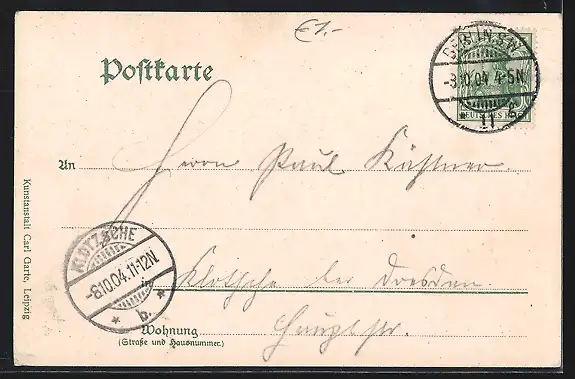 €1,-
BERLIN, S.W.
-8.10.04 4-5N.
* 11 g
DEUTSCHES REICH
Postkarte
An Herrn Paul Kästner.
KLOTZSCHE
-8.10.04.11-12N.
* b. *
in Klotsche bei Dresden.
Wohnung Hauptstr.
(Straße und Hausnummer.)
Kunstanstalt Carl Garte, Leipzig